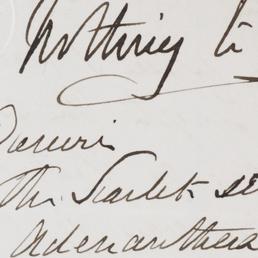 Nothing to
Darwin
The Scarlet se
Adenanthera